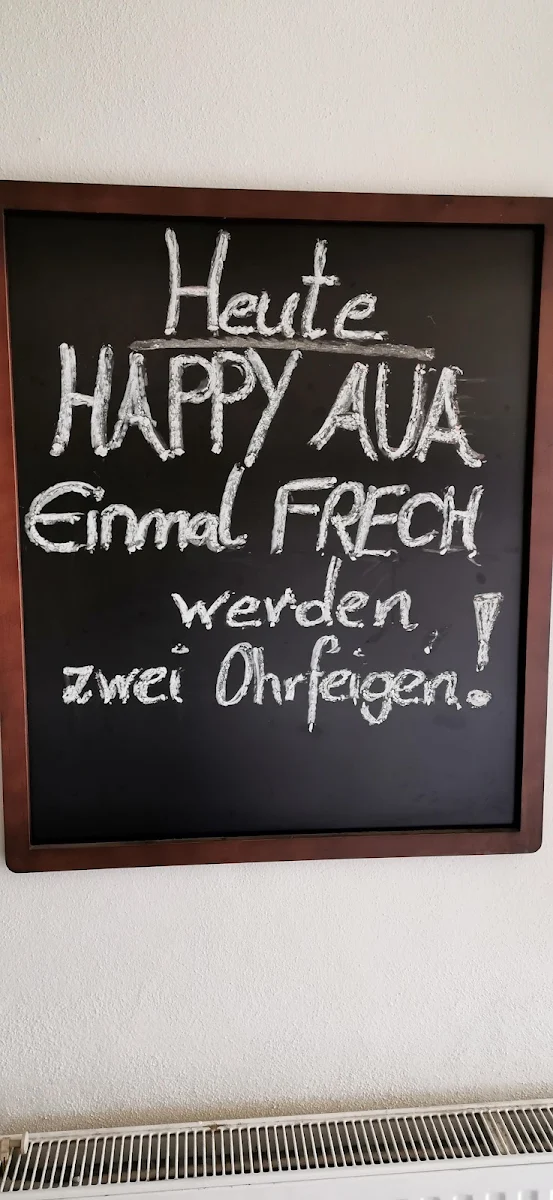 Heute
HAPPY AUA
Einmal FRECH
werden
zwei Ohrfeigen!